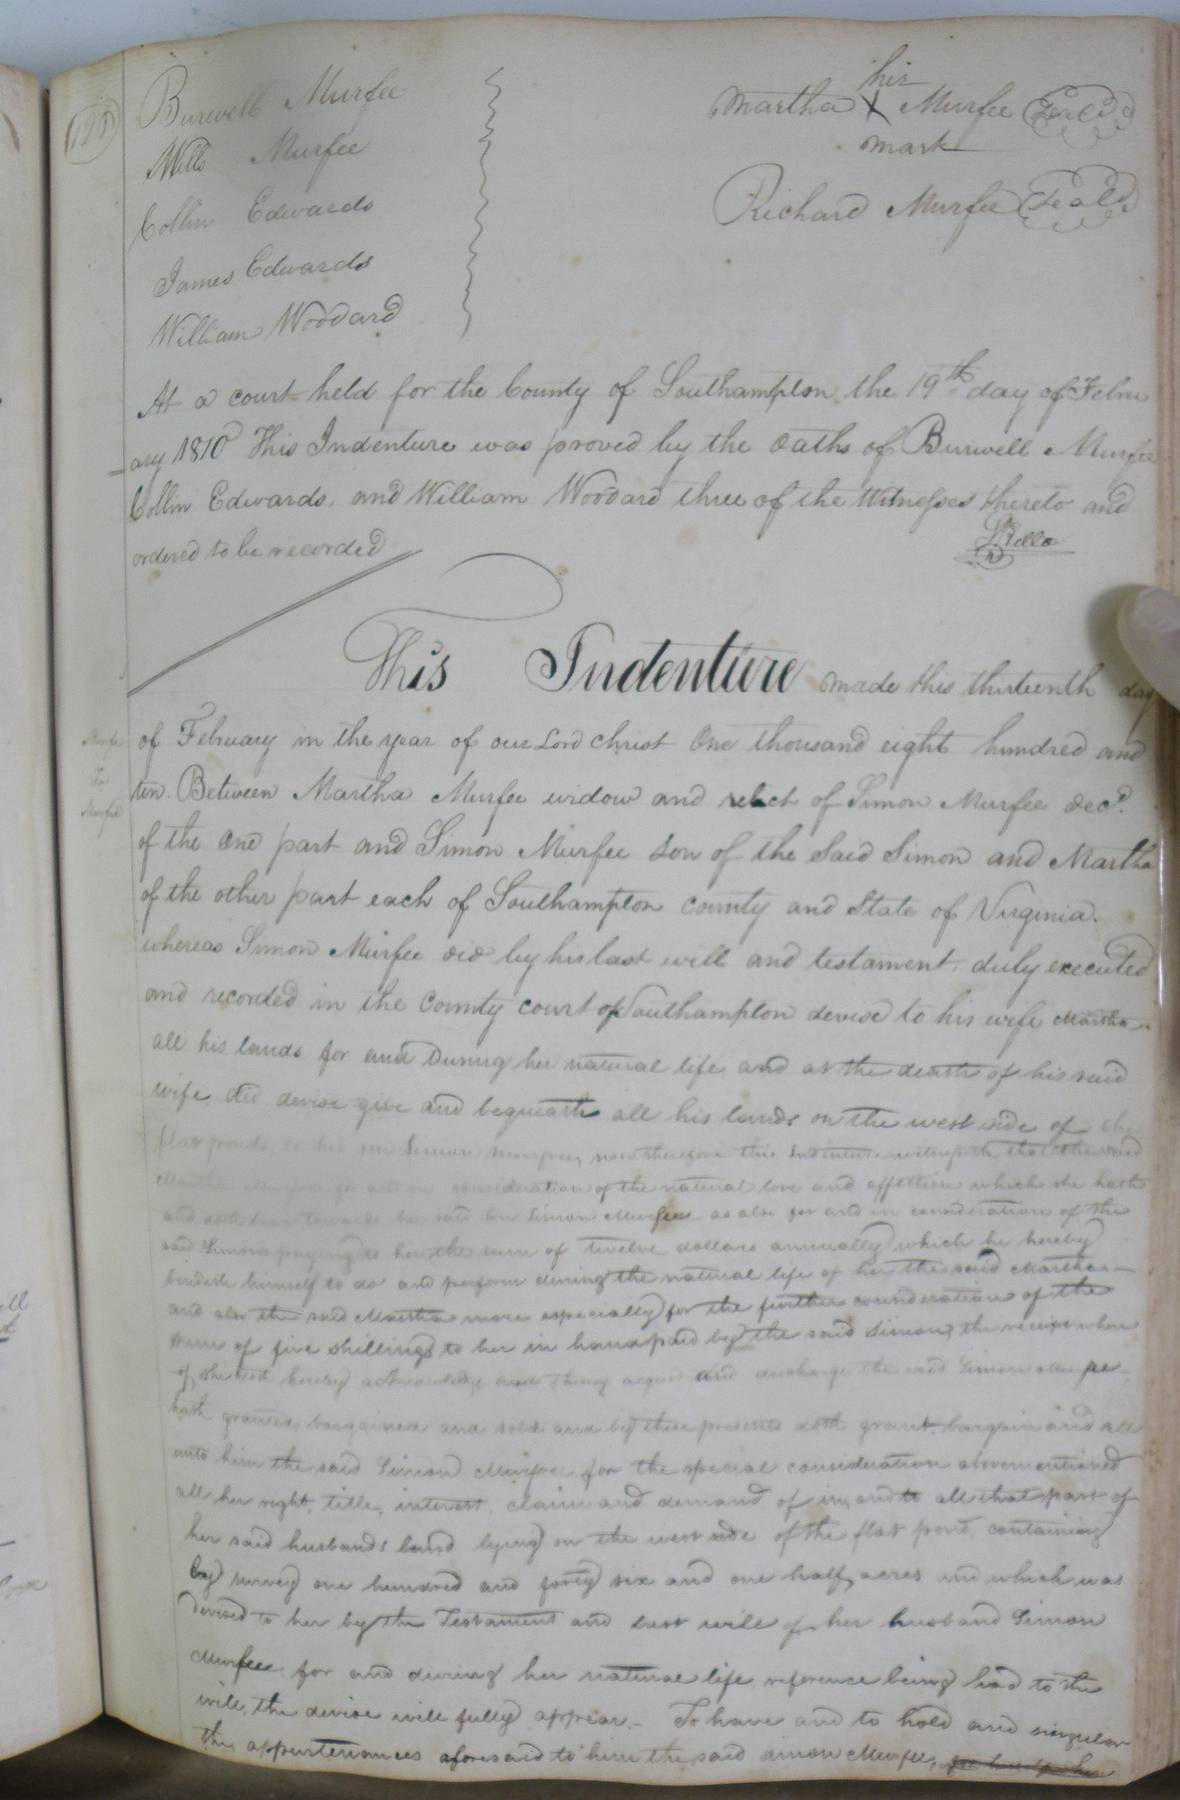 his
Burwell Murfee Martha X Murfee Seal
mark
Mills Murfee
Richard Murfee Seal
Collin Edwards
James Edwards
William Woodard
At a court held for the County of Southampton the 19th day of Febru
ary 1810 This Indenture was proved by the oaths of Burwell Murfee
Collin Edwards, and William Woodard three of the Witnesses thereto and
ordered to be recorded
This Indenture made this thirteenth day
of February in the year of our Lord Christ One thousand eight hundred and
ten. Between Martha Murfee widow and relict of Simon Murfee decd.
of the One part and Simon Murfee son of the said Simon and Martha
of the other part each of Southampton County and State of Virginia.
whereas Simon Murfee did by his last will and testament, duly executed
and recorded in the County court of Southampton devise to his wife Martha
all his lands for and During her natural life, and at the death of his said
wife did devise give and bequeath all his lands on the west side of the
flat pond, to his son Simon Murfee, now therefore this Indenture witnesseth, that the said
Martha Murfee for and in consideration of the natural love and affection which she hath
and doth bear towards her said son Simon Murfee as also for and in consideration of the
said Simons paying to her the sum of twelve dollars annually which he hereby
bindeth himself to do and perform during the natural life of her the said Martha
and also the said Martha more especially for the further consideration of the
sum of five shillings to her in hand paid by the said Simon, the receipt where
of she doth hereby acknowledge and discharge the said Simon Murfee
hath granted, bargained and sold and by these presents doth grant bargain and sell
unto him the said Simon Murfee, for the special consideration abovementioned
all her right, title, interest, claim and demand of in, and to all that part of
her said husbands land lying on the west side of the flat pond, containing
by survey one hundred and forty six and one half acres which was
Devised to her by the Testament and last will of her husband Simon
Murfee for and during her natural life reference being had to the
will, the devise will fully appear. To have and to hold and singular
the appurtenances aforesaid to him the said Simon Murfee,
Murfee
To
Murfee